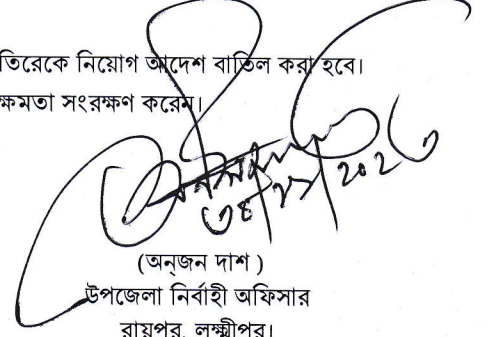 তিরেকে নিয়োগ আদেশ বাতিল করা হবে।
ক্ষমতা সংরক্ষণ করেন।
(অন্‌জন দাশ )
উপজেলা নির্বাহী অফিসার
রায়পুর, লক্ষ্মীপুর।